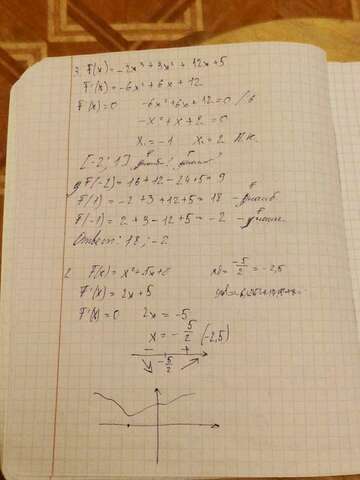 3. F(x) = -2x³ + 3x² + 12x + 5
F'(x) = -6x² + 6x + 12
F'(x) = 0 -6x² + 6x + 12 = 0 / 6
-x² + x + 2 = 0
x₁ = -1 x₂ = 2
[-2; 1]
F(-2) = 16 + 12 - 24 + 5 = 9
F(1) = -2 + 3 + 12 + 5 = 18 - унаиб.
F(-1) = 2 + 3 - 12 + 5 = -2 - унаим.
Ответ: 18; -2
2. F(x) = x² + 5x + 6 x0 = -5/2 = -2,5
F'(x) = 2x + 5
F'(x) = 0 2x = -5
x = -5/2 (-2,5)
- +
-5/2